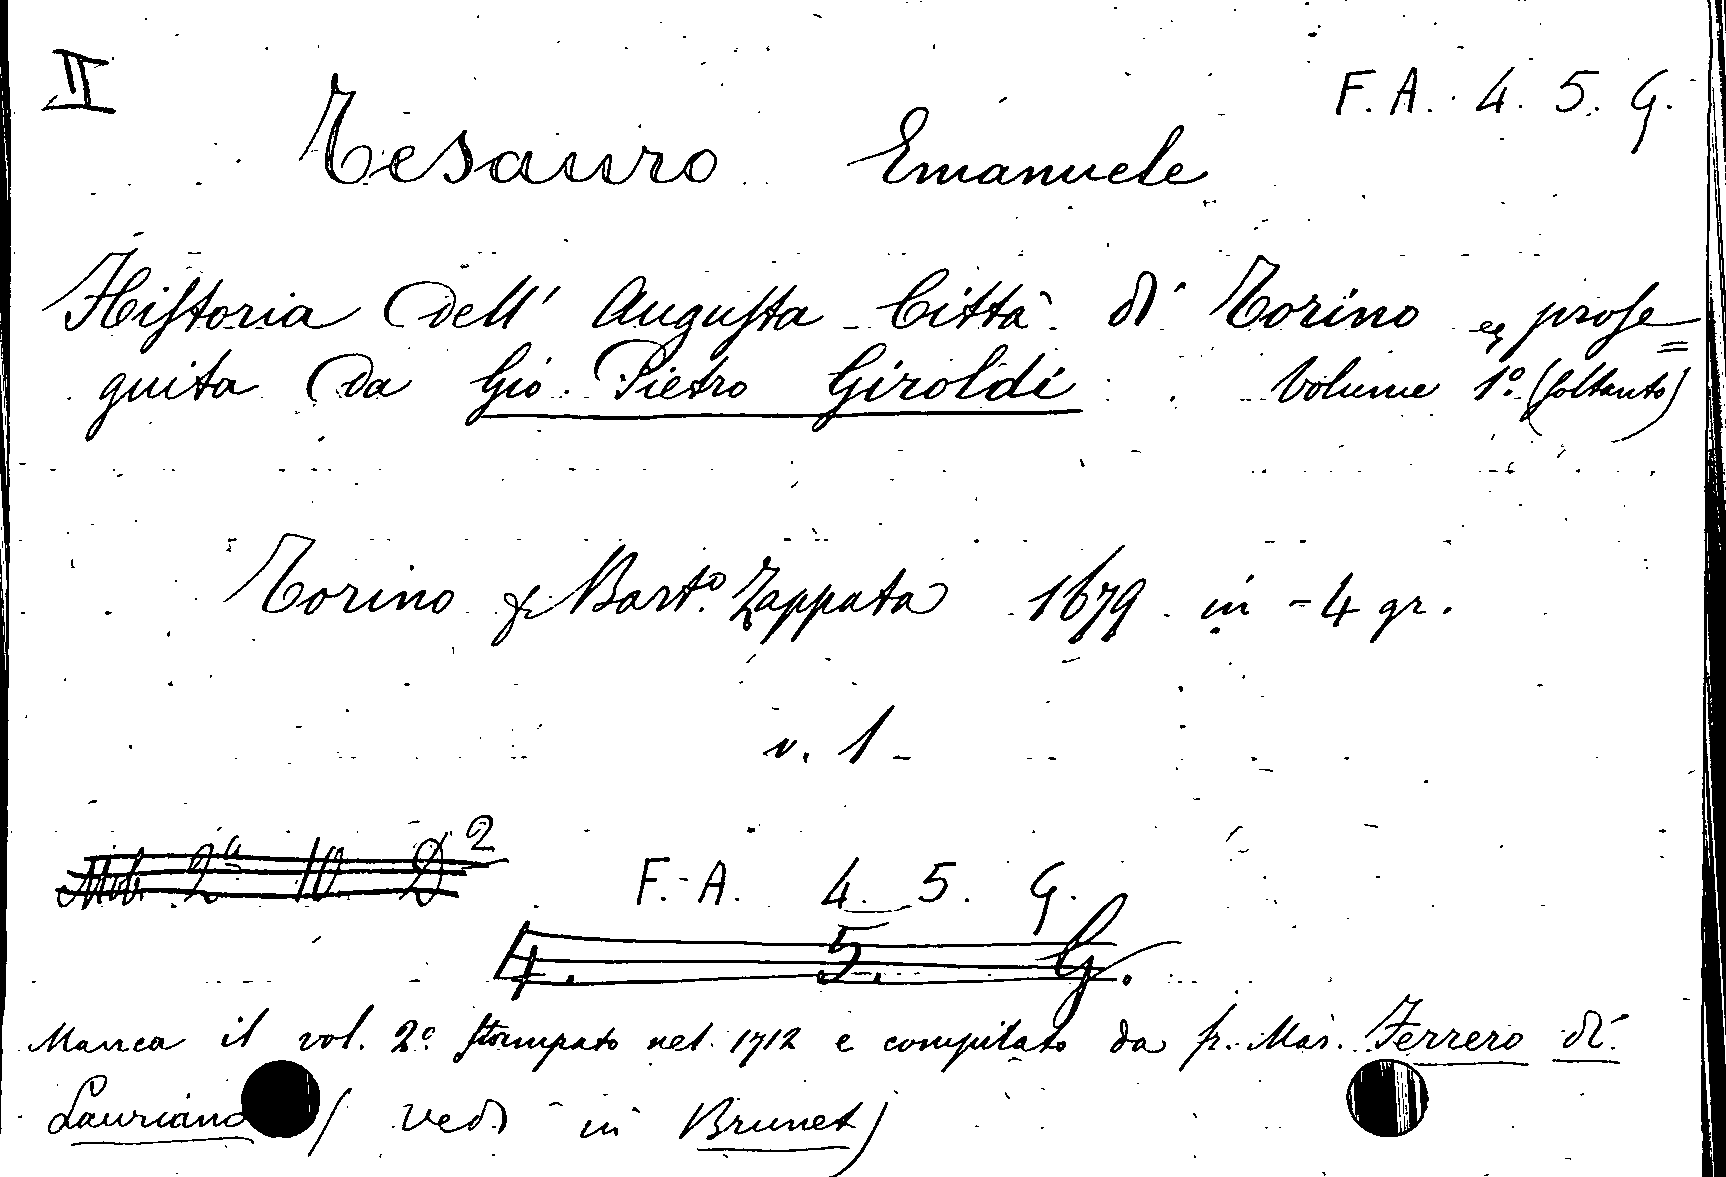 II
F. A. 4. 5. G.
Tesauro Emanuele
Hiſtoria dell' Auguſta Città di Torino proſe=
guita da Gio. Pietro Giroldi Volume 1º (ſoltanto)
Torino Bartº. Zappata 1679 in-4 gr.
v. 1
Mob. 2ª 10 D2
F. A. 4. 5. G.
4. 5. G.
Manca il vol. 2º ſtampato nel 1712 e compilato da fr. Mar. Ferrero di
Lauriano ( vedi in Brunet)